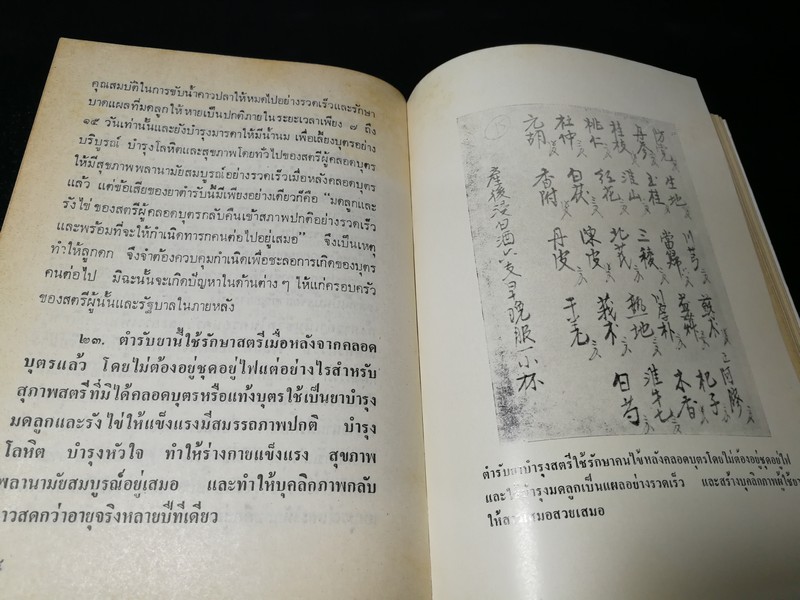 คุณสมบัติในการขับน้ำคาวปลาให้หมดไปอย่างรวดเร็วและรักษา
บาดแผลที่มดลูกให้หายเป็นปกติภายในระยะเวลาเพียง ๗ ถึง
๑๕ วันเท่านั้นและยังบำรุงมารดาให้มีน้ำนม เพื่อเลี้ยงบุตรอย่าง
บริบูรณ์ บำรุงโลหิตและสุขภาพโดยทั่วไปของสตรีผู้คลอดบุตร
ให้มีสุขภาพพลานามัยสมบูรณ์อย่างรวดเร็วเมื่อหลังคลอดบุตร
แล้ว แต่ข้อเสียของยาตำรับนี้มีเพียงอย่างเดียวก็คือ "มดลูกและ
รังไข่ ของสตรีผู้คลอดบุตรกลับคืนเข้าสภาพปกติอย่างรวดเร็ว
และพร้อมที่จะให้กำเนิดทารกคนต่อไปอยู่เสมอ" จึงเป็นเหตุ
ทำให้ลูกดก จึงจำต้องควบคุมกำเนิดเพื่อชะลอการเกิดของบุตร
คนต่อไป มิฉะนั้นจะเกิดปัญหาในด้านต่าง ๆ ให้แก่ครอบครัว
ของสตรีผู้นั้นและรัฐบาลในภายหลัง
๒๓. ตำรับยานี้ใช้รักษาสตรีเมื่อหลังจากคลอด
บุตรแล้ว โดยไม่ต้องอยู่ชุดอยู่ไฟแต่อย่างไรสำหรับ
สุภาพสตรีที่มิได้คลอดบุตรหรือแท้งบุตรใช้เป็นยาบำรุง
มดลูกและรังไข่ให้แข็งแรงมีสมรรถภาพปกติ บำรุง
โลหิต บำรุงหัวใจ ทำให้ร่างกายแข็งแรง สุขภาพ
พลานามัยสมบูรณ์อยู่เสมอ และทำให้บุคลิกภาพกลับ
าวสดกว่าอายุจริงหลายปีทีเดียว
防党 生地 川芎
丹參 玉桂 當歸
桂枝 淮山 三稜 川厚朴 木香
桃仁 紅花 北芪 熟地 淮牛七
杜仲 白茯 陳皮 莪术 白芍
元胡 香附 丹皮 干羌
產後浸白酒 早晚服一小杯
ตำรับยาบำรุงสตรีใช้รักษาคนไข้หลังคลอดบุตรโดยไม่ต้องอยู่ชุดอยู่ไฟ
และใช้บำรุงมดลูกเป็นแผลอย่างรวดเร็ว และสร้างบุคลิกภาพผู้ใช้ยา
ให้สาวเสมอสวยเสมอ